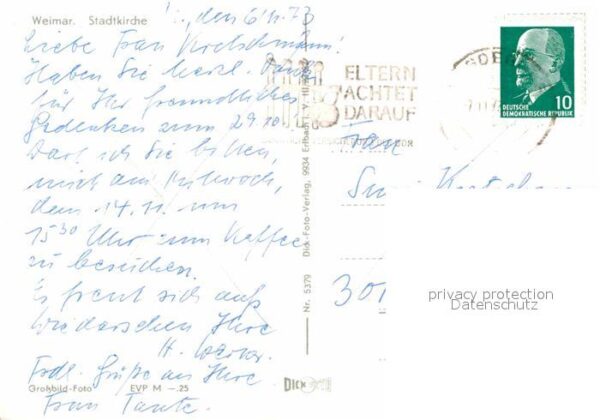 Weimar. Stadtkirche
, den 6.11.73
Liebe Frau
Haben Sie herzl. Dank
für Ihr freundliches
Gedenken zum 29.10.
Darf ich Sie bitten,
mich am Mittwoch,
dem 14.11. um
15³⁰ Uhr zum Kaffee
zu besuchen.
Es freut sich aufs
Wiedersehen Ihre
H.
Frdl. Grüße an Ihre
Frau Tante.
Großbild-Foto EVP M —.25
Nr. 5379 Dick-Foto-Verlag, 9934 Erlbach i. V.
DICK
ELTERN
ACHTET
DARAUF
DDR
10
DEUTSCHE
DEMOKRATISCHE REPUBLIK
Frau
301
privacy protection
Datenschutz